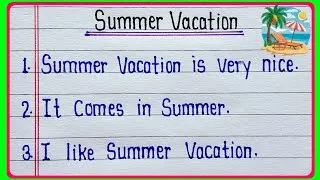 Summer Vacation
1. Summer Vacation is very nice.
2. It Comes in Summer.
3. I like Summer Vacation.